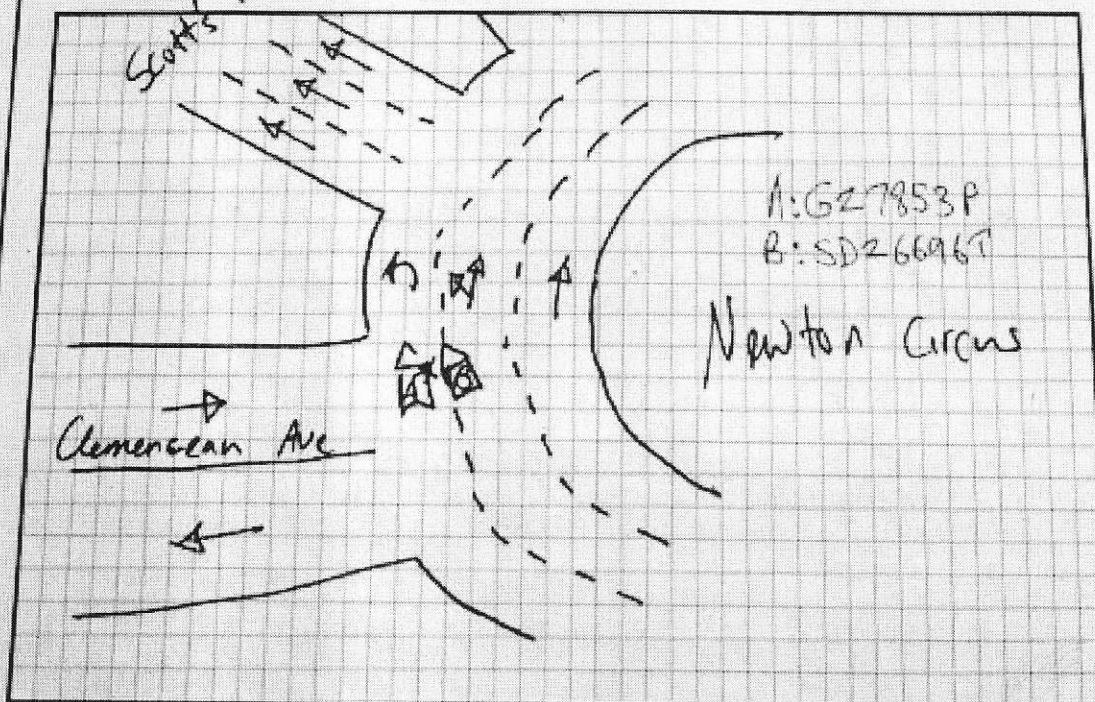 Scotts
A: GZ7853P
B: SDZ6696T
Newton Circus
A
B
Clemenceau Ave